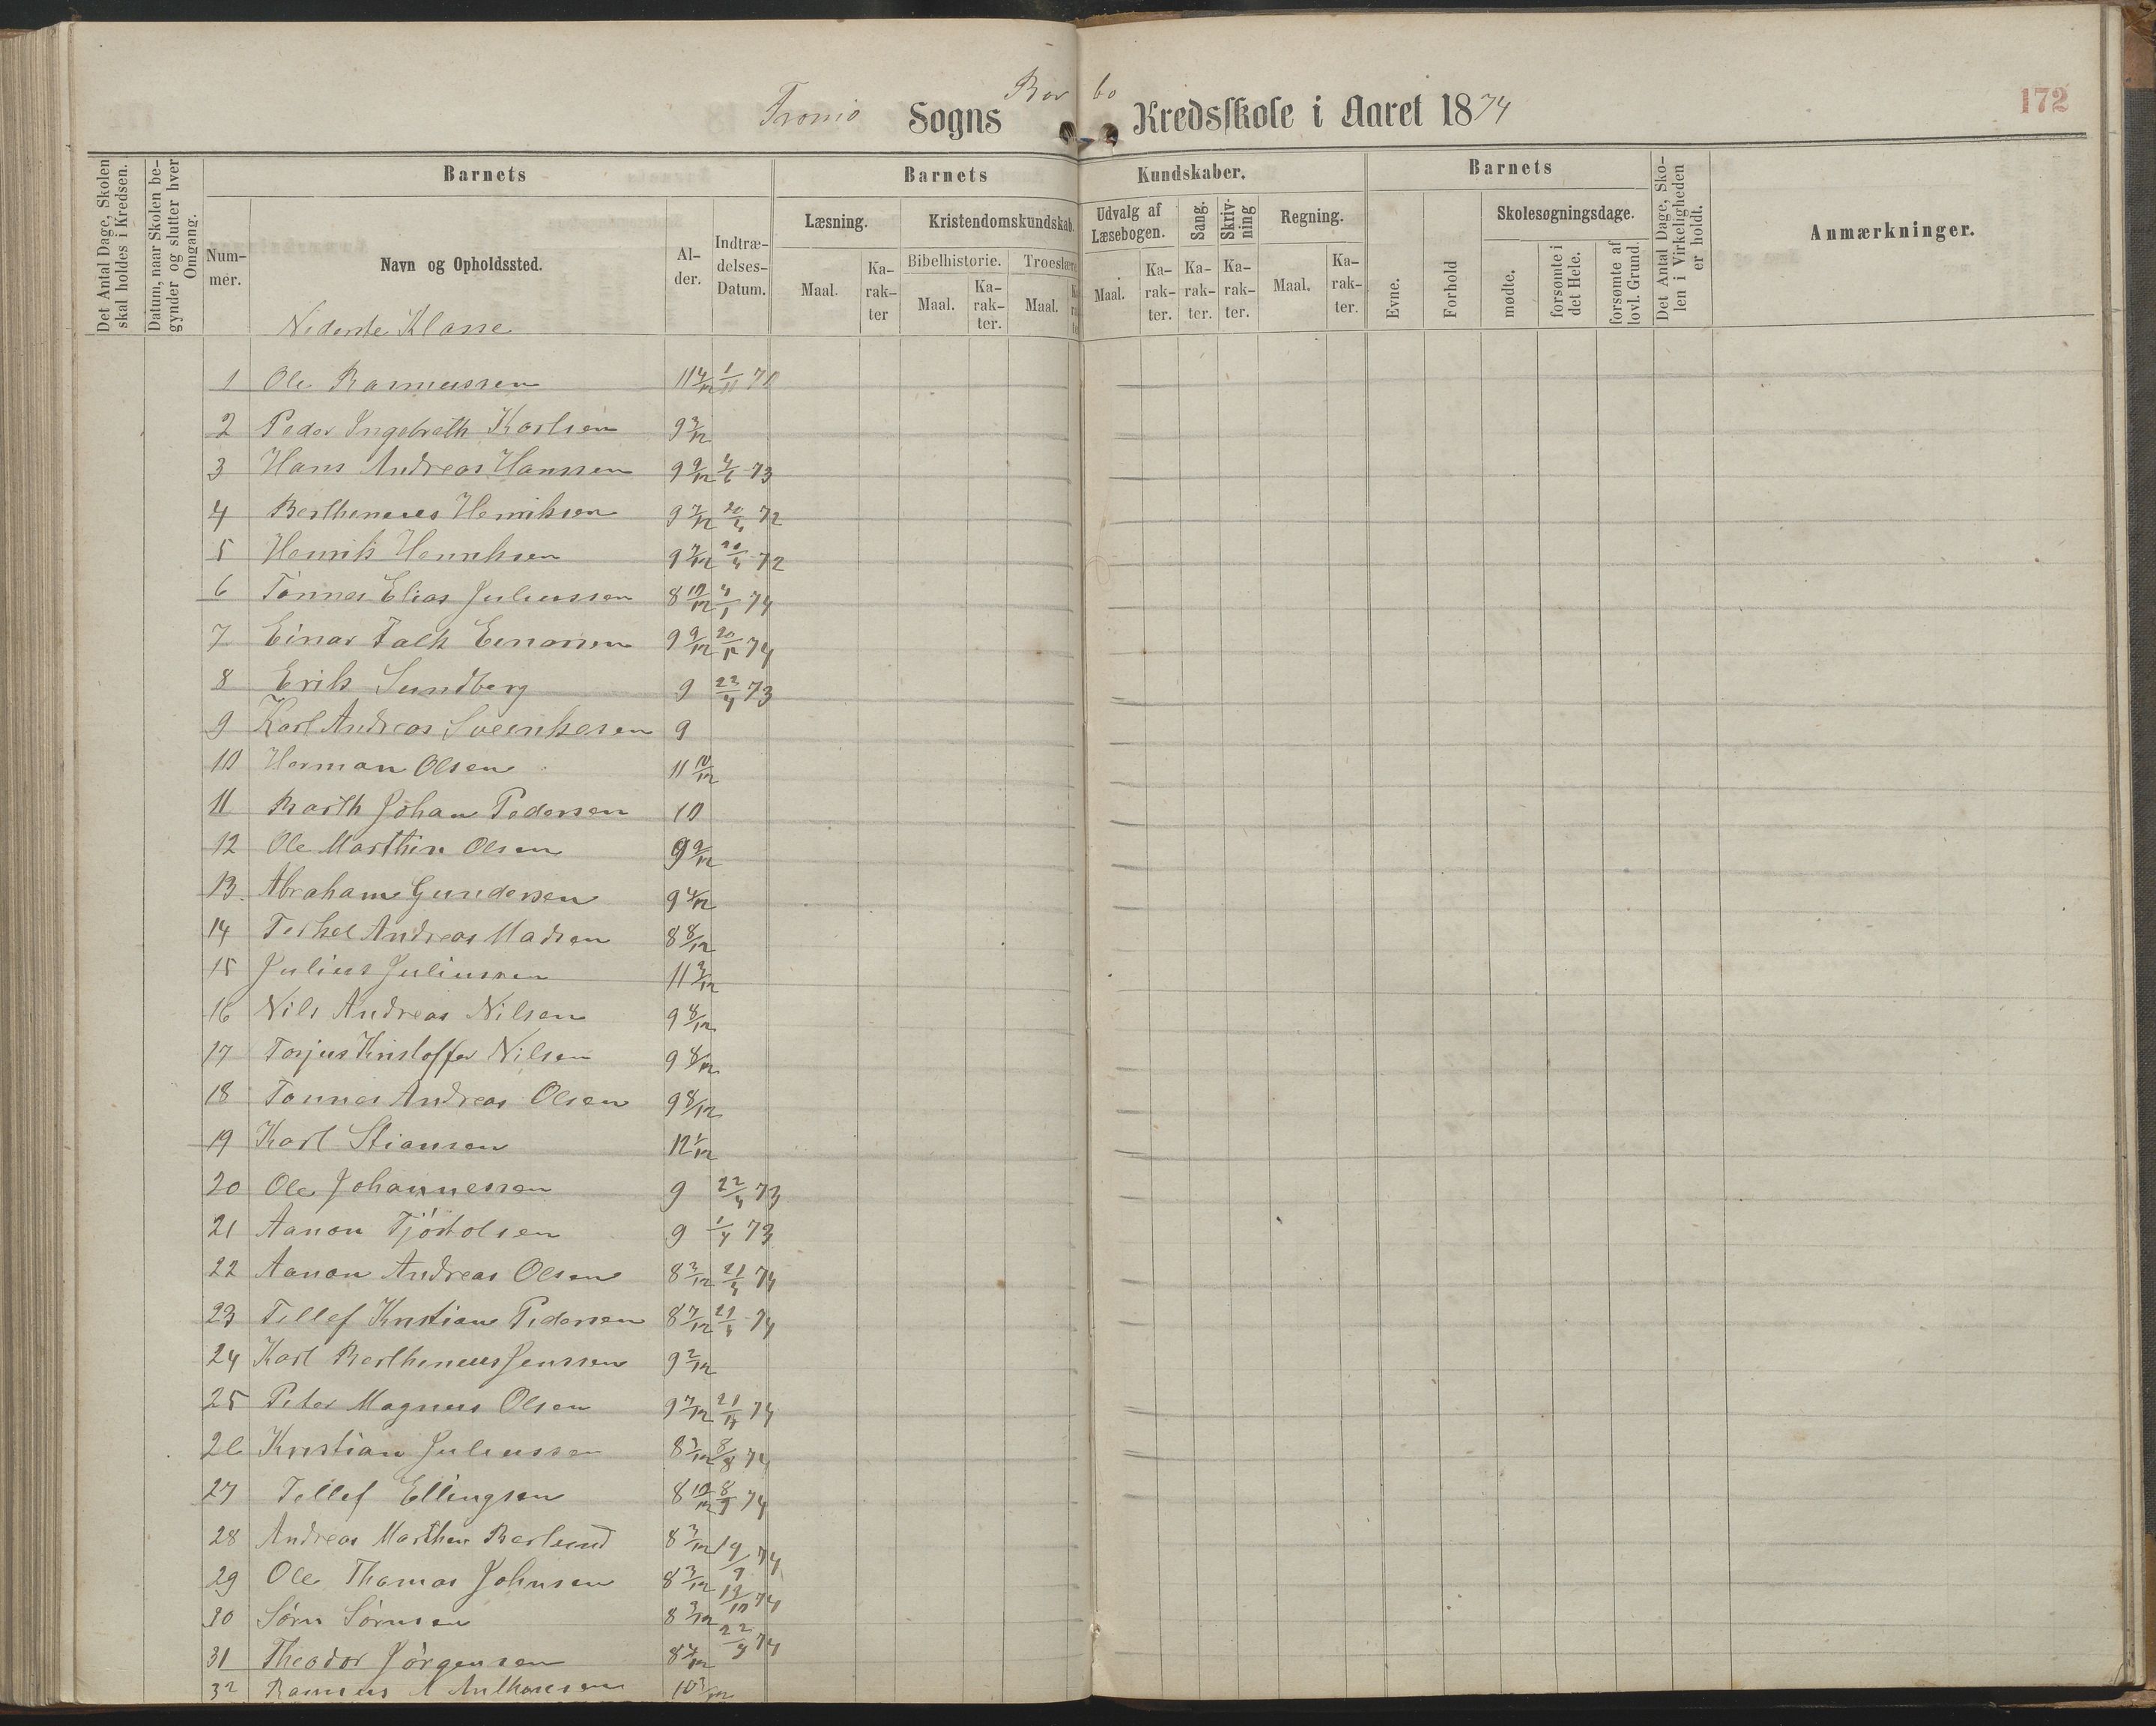 Tromø Sogns Barbo Kredsskole i Aaret 1874
172
Det Antal Dage, Skolen skal holdes i Kredsen.
Datum, naar Skolen begynder og slutter hver Omgang.
Barnets
Nummer.
Navn og Opholdssted.
Alder.
Indtrædelses-Datum.
Barnets Kundskaber.
Læsning.
Maal.
Karakter
Kristendomskundskab.
Bibelhistorie.
Maal.
Karakter.
Troeslære
Maal.
Udvalg af Læsebogen.
Maal.
Karakter.
Sang.
Karakter.
Skrivning
Karakter.
Regning.
Maal.
Karakter.
Barnets
Evne.
Forhold
Skolesøgningsdage.
mødte.
forsømte i det Hele.
forsømte af lovl. Grund.
Det Antal Dage, Skolen i Virkeligheden er holdt.
Anmærkninger.
Nederste Klasse
1 Ole Rasmussen 11 4/12 1/11 71
2 Peder Ingebreth Karlsen 9 3/12
3 Hans Andreas Hanssen 9 9/12 4/6 73
4 Berthineus Henriksen 9 7/12 20/4 72
5 Henrik Henriksen 9 7/12 20/4 72
6 Tønnes Elias Juliussen 8 10/12 4/1 74
7 Einar Falk Einarsen 9 9/12 20/12 74
8 Erik Sundberg 9 22/4 73
9 Karl Andreas Sveinksen 9
10 Herman Olsen 11 10/12
11 Barth Johan Pedersen 10
12 Ole Marthin Olsen 9 9/12
13. Abraham Gundersen 9 4/12
14 Terkel Andreas Madsen 8 8/12
15 Julius Juliussen 11 3/12
16 Nils Andreas Nilsen 9 8/12
17 Torjus Kristoffer Nilsen 9 8/12
18 Tønnes Andreas Olsen 9 8/12
19 Karl Stiansen 12 1/12
20 Ole Johannessen 9 22/4 73
21 Aanon Tjøstolsen 9 1/4 73
22 Aanon Andreas Olsen 8 3/12 21/4 74
23 Tellef Kristian Pedersen 8 7/12 21/4 74
24 Karl Berthineus Jenssen 9 2/12
25 Peter Magnus Olsen 9 7/12 21/4 74
26 Kristian Juliussen 8 3/12 8/8 74
27 Tellef Ellingsen 8 10/12 8/9 74
28 Andreas Marthin Berlund 8 3/12 14/9 74
29 Ole Thomas Johnsen 8 3/12 12/10 74
30 Sørn Sørnsen 8 3/12 22/4 74
31 Theodor Jørgensen 8 4/12
32 Rasmus A Anthonsen 10 3/12